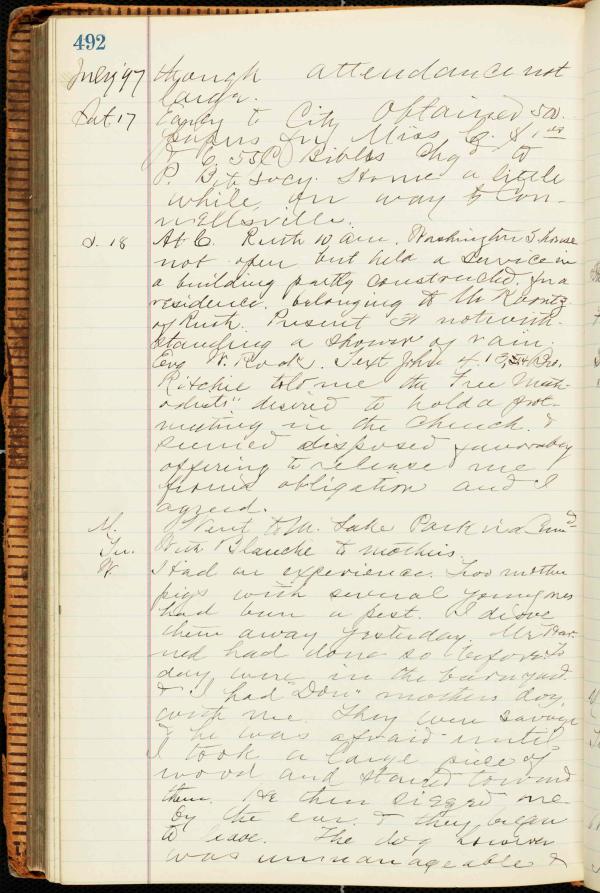 492
July '97 though attendance not
large.
Sat 17 Early to City Obtained 50
papers for Miss $1.00
& C. 55c Bibles chg to
P. B. Home a little
while for way to Con-
nellsville.
S. 18 At C. Ruth 10 a.m. Washington S. house
not open but held a service in
a building partly constructed for a
residence belonging to Mr
of Ruth. Present 31 notwith-
standing a shower of rain.
Eve W. Rock. Text John 4. 13, Bro.
Ritchie told me the "Free Meth-
odists" desired to hold a prot.
meeting in the church &
seemed disposed favorably
offering to release me
from obligation and I
agreed.
M. Went to M. Lake Park via
Tu. With Blanche to mothers.
W. I had an experience. Two mother
pigs with several young ones
had been a pest. I drove
them away yesterday. Mr
had done so before. To
day were in the barnyard.
& I had "Don" mothers dog,
with me. They were savage
& he was afraid until
I took a large piece of
wood and started toward
them. He then one
by the ear. & they began
to leave. The dog however
was unmanageable &